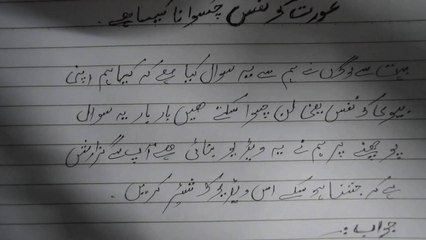 عورت کو نفس چسوانا کیسا ہے۔
بہت سے لوگوں نے ہم سے یہ سوال کیا ہے کہ کیا ہم اپنی
بیوی کو نفس یعنی لن چسوا سکتے ہیں بار بار یہ سوال
پوچھنے پر ہم نے یہ ویڈیو بنائی ہے آپ سے گزارش
ہے کہ جتنا ہو سکے اس ویڈیو کو شیئر کریں۔
جواب :۔